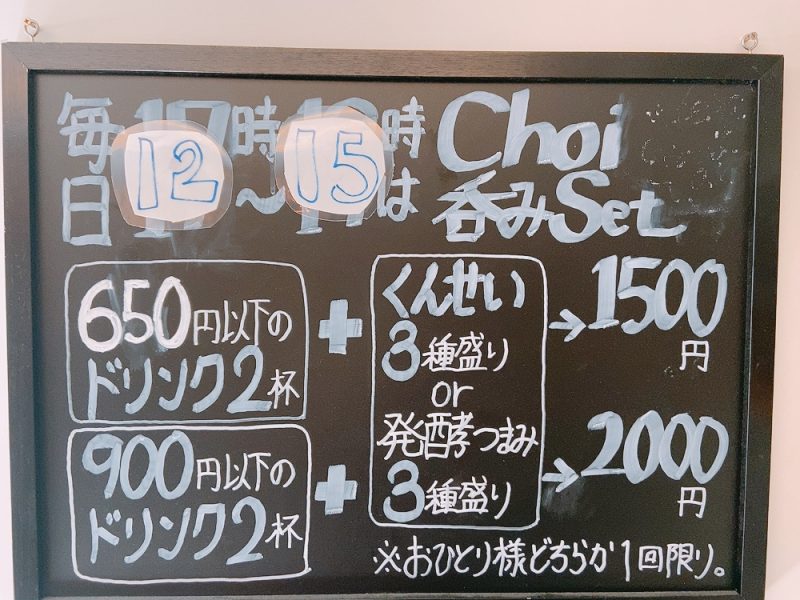 毎日12時～15時は
Choi
呑みSet
650円以下の
ドリンク2杯
+
くんせい
3種盛り
or
発酵つまみ
3種盛り
→1500
円
900円以下の
ドリンク2杯
+
→2000
円
※おひとり様どちらか1回限り。